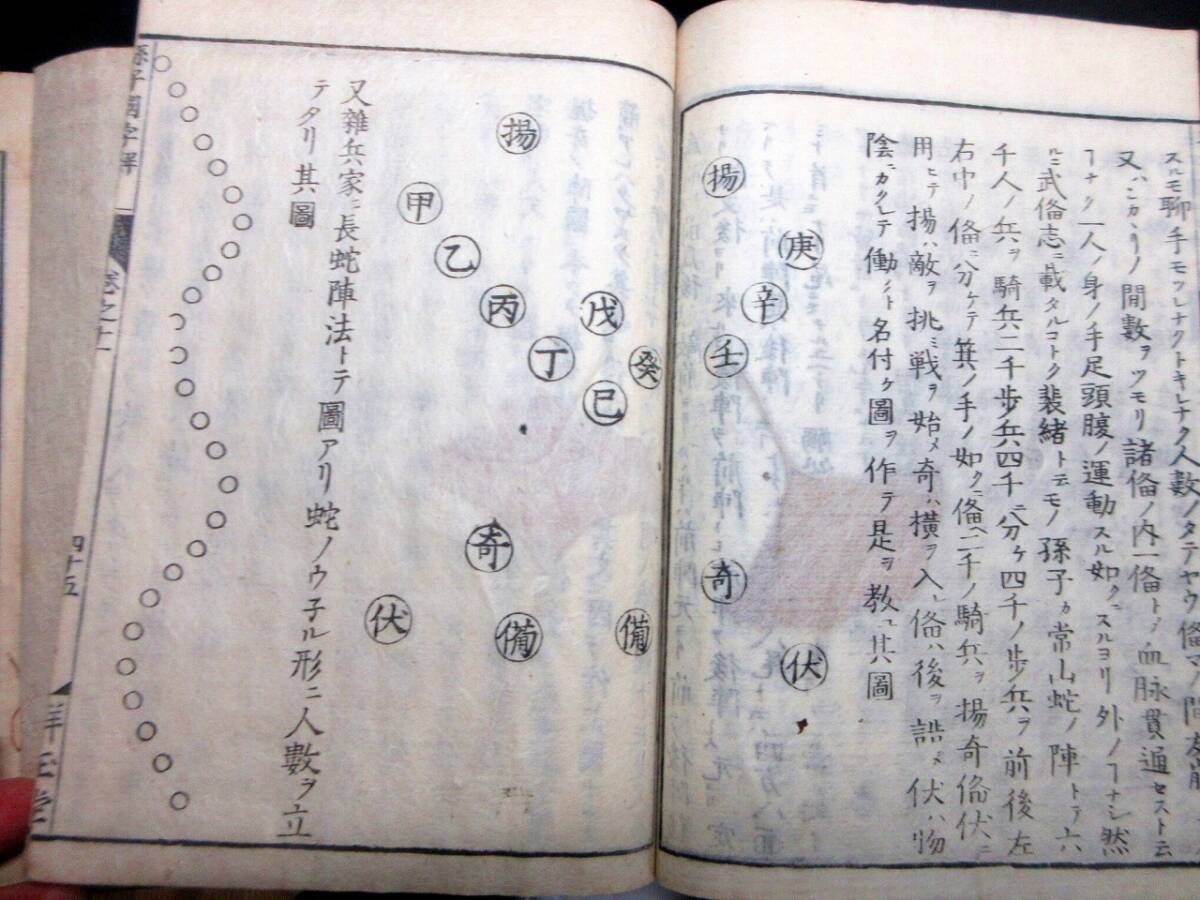 スルモ聊手モツレナクトキレナク人数ノタテヤウ備マノ間
又ハニカヽリノ間数ヲツモリ諸備ノ内一備トノ血脉貫通セスト云
ナク一人ノ身ノ手足頭腹ノ運動スル如クニスルヨリ外ノナシ然
ルニ武俻志ニ載タルコトク裴緒ト云モノ孫子カ常山蛇ノ陣トテ六
千人ノ兵ヲ騎兵二千歩兵四千ニ分ケ四千ノ歩兵ヲ前後左
右中ノ俻ニ分ケテ箕ノ手ノ如クニ俻ヘ二千ノ騎兵ヲ揚奇俻伏ニ
用ヒテ揚ハ敵ヲ挑ミ戦ヲ始メ奇ハ横ヲ入レ俻ハ後ヲ詰メ伏ハ物
陰ニカクレテ働クト名付ケ圖ヲ作テ是ヲ教ユ其圖
揚
庚
辛
壬
奇
伏
癸
備
戊
己
揚
丁
丙
乙
甲
奇
備
伏
又雜兵家ニ長蛇陣法トテ圖アリ蛇ノウ子ル形ニ人數ヲ立
テタリ其圖
孫子國字解
卷之十一
四十五